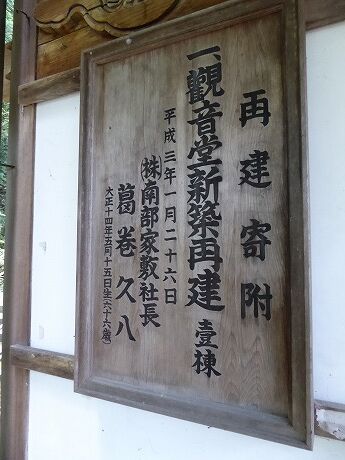 再建寄附
一、觀音堂新築再建 壹棟
平成三年一月二十六日
㈱南部家敷社長
葛巻久八
大正十四年五月十五日生(六十六歳)